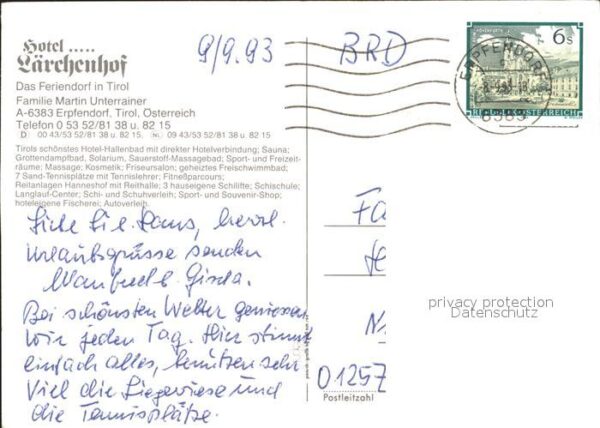 Hotel .....
Lärchenhof
Das Feriendorf in Tirol
Familie Martin Unterrainer
A-6383 Erpfendorf, Tirol, Österreich
Telefon 0 53 52/81 38 u. 82 15
D: 00 43/53 52/81 38 u. 82 15, NL: 09 43/53 52/81 38 u. 82 15
Tirols schönstes Hotel-Hallenbad mit direkter Hotelverbindung; Sauna;
Grottendampfbad, Solarium, Sauerstoff-Massagebad; Sport- und Freizeit-
räume; Massage; Kosmetik; Friseursalon; geheiztes Freischwimmbad;
7 Sand-Tennisplätze mit Tennislehrer; Fitneßparcours;
Reitanlagen Hanneshof mit Reithalle; 3 hauseigene Schilifte; Schischule;
Langlauf-Center; Schi- und Schuhverleih; Sport- und Souvenir-Shop;
hoteleigene Fischerei; Autoverleih.
9/9.93
BRD
6s
ERPFENDORF
6383
REPUBLIK ÖSTERREICH
Hans, herzl.
Urlaubsgrüsse senden
Manfred & Gisela.
Bei schönsten Wetter geniesen
wir jeden Tag. Hier stimmt
einfach alles, benützen sehr
Viel die Liegewiese und
die Tennisplätze.
Fa
01257
Postleitzahl
privacy protection
Datenschutz